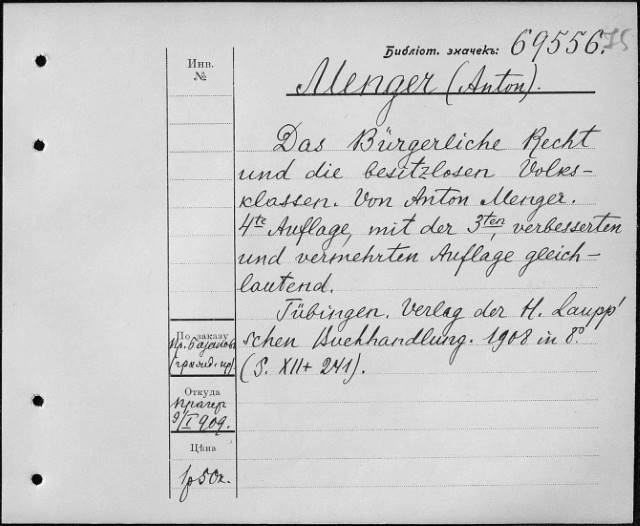 Библіот. значекъ: 69556.
Инв.
№
Menger (Anton).
Das Bürgerliche Recht
und die besitzlosen Volks-
klassen. Von Anton Menger.
4te Auflage, mit der 3ten, verbesserten
und vermehrten Auflage gleich-
lautend.
Tübingen. Verlag der H. Laupp'
schen Buchhandlung. 1908 in 8º
(S. XII + 241).
По заказу
Откуда
9/I 909.
Цѣна
1р 50к.